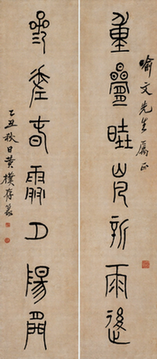 喻文先生屬正
重疊曉山新雨後
參差春夕陽間
乙丑秋日黃樸存篆